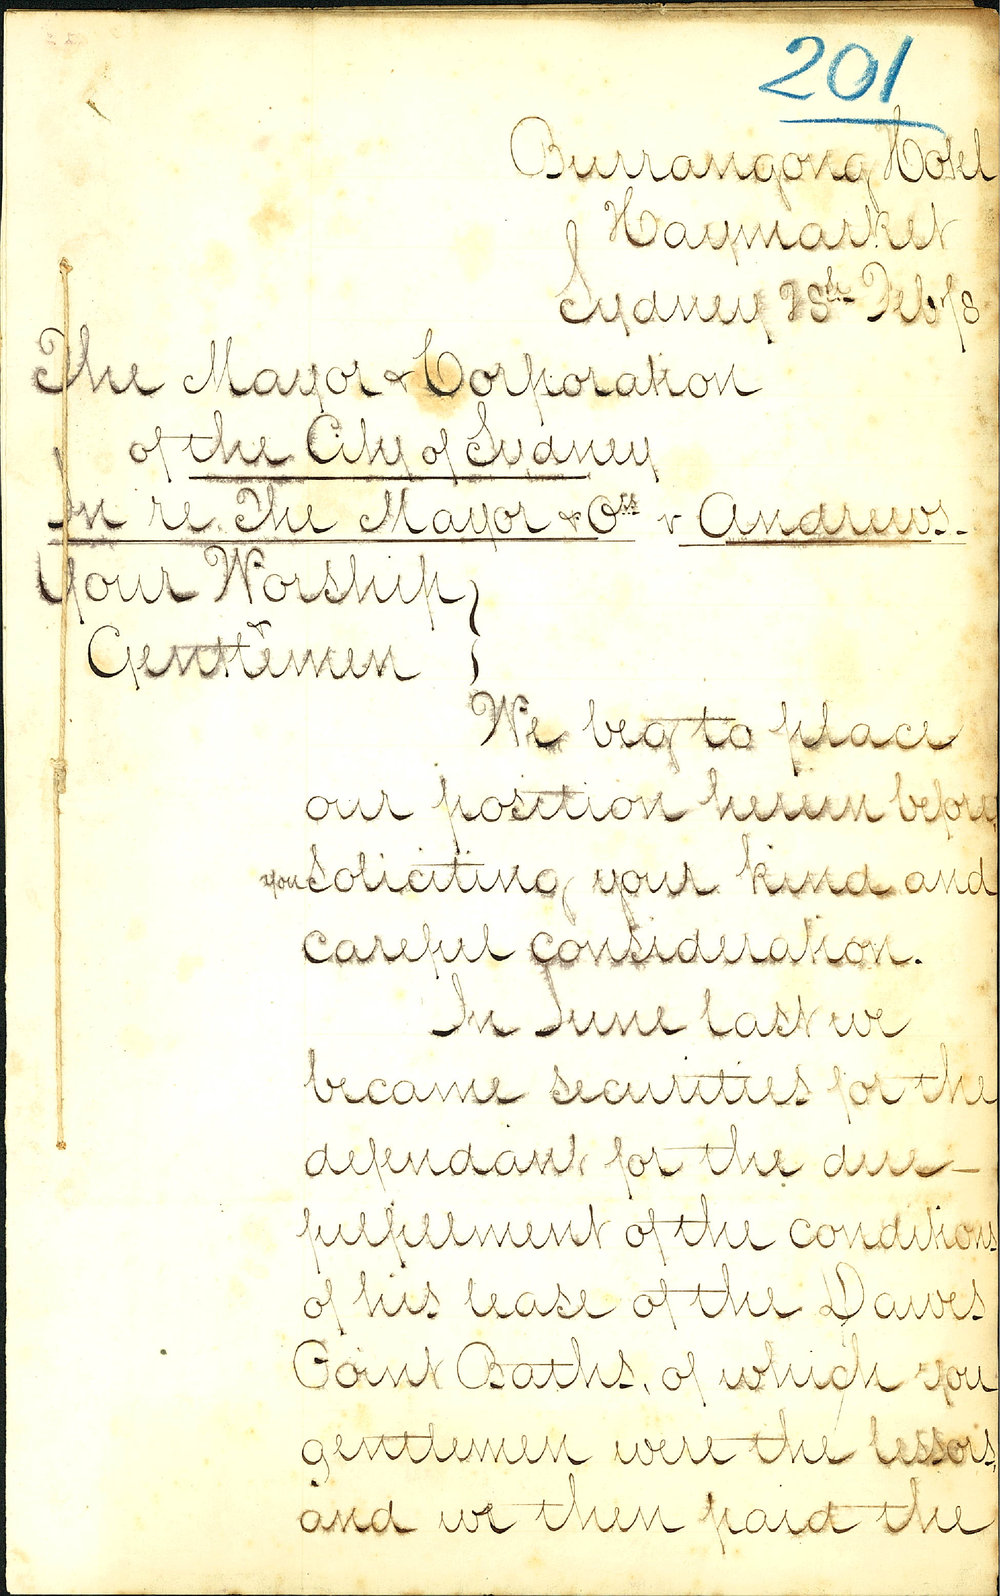 201
Burrangong Hotel
Haymarket
Sydney 28th Feby/8
The Mayor & Corporation
of the City of Sydney
In re The Mayor & Ors v Andrews.
Your Worship,
Gentlemen
We beg to place
our position herein before
you soliciting your kind and
careful consideration.
In June last we
became securities for the
defendant for the due
fulfillment of the conditions
of his lease of the Dawes
Point Baths, of which you
gentlemen were the lessors,
and we then paid the